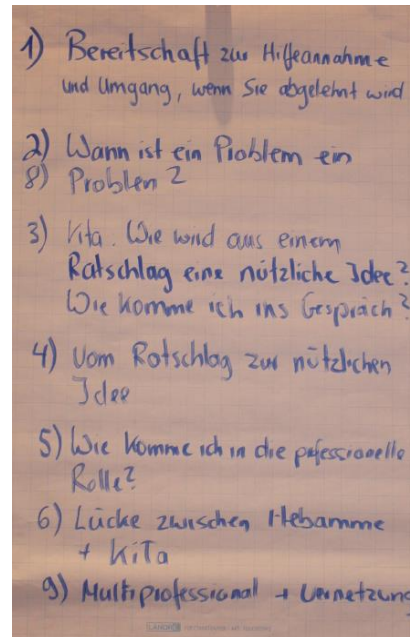 1) Bereitschaft zur Hilfeannahme
und Umgang, wenn Sie abgelehnt wird
2) Wann ist ein Problem ein
8) Problem ?
3) Kita. Wie wird aus einem
Ratschlag eine nützliche Idee?
Wie komme ich ins Gespräch?
4) Vom Ratschlag zur nützlichen
Idee
5) Wie komme ich in die pofessionelle
Rolle?
6) Lücke zwischen Hebamme
+ KiTa
9) Multiprofessional + Vernetzung
LANDRÉ